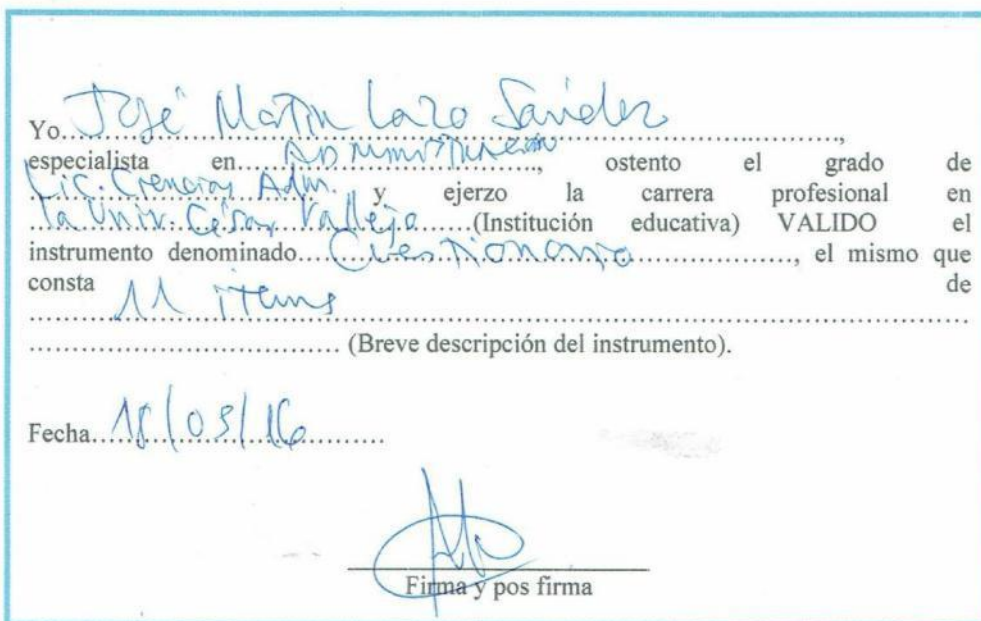 Yo José Martín Lazo Sánchez,
especialista en Administración, ostento el grado de
Lic. Ciencias Adm. y ejerzo la carrera profesional en
la Univ. César Vallejo (Institución educativa) VALIDO el
instrumento denominado Cuestionario, el mismo que
consta 11 items de
(Breve descripción del instrumento).
Fecha 18/05/16
Firma y pos firma